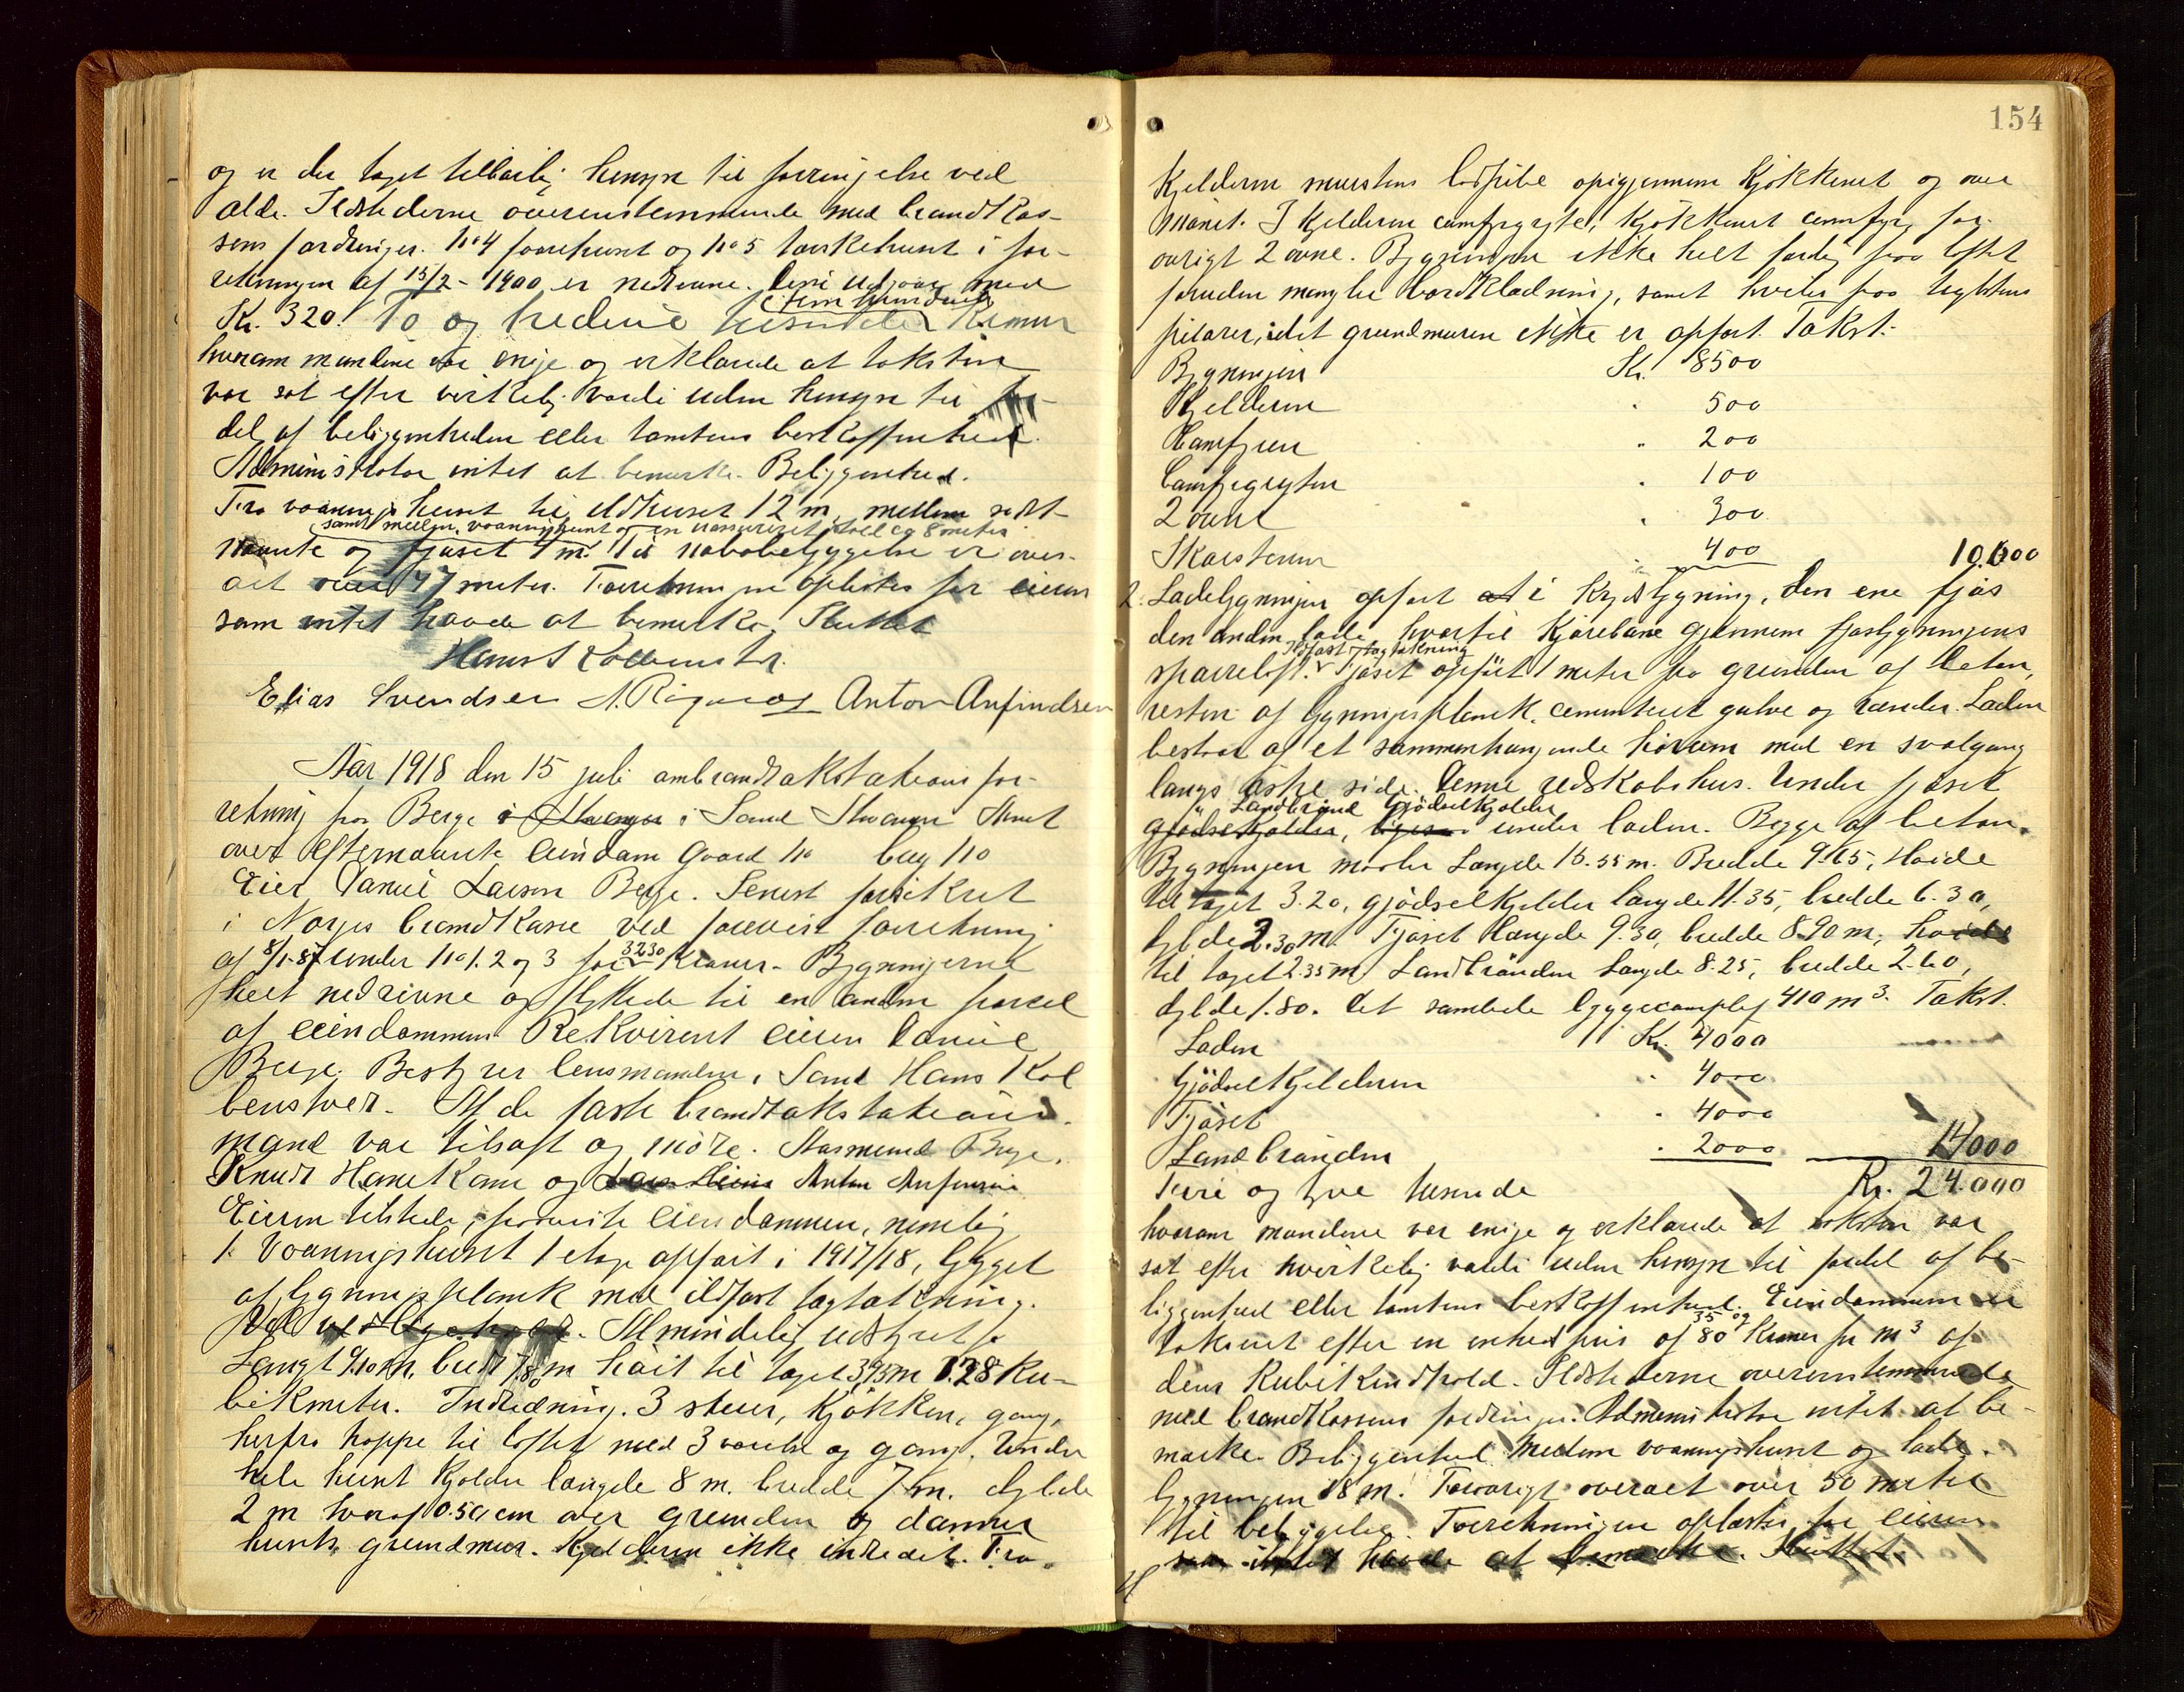 og er der taget tilbørlig hensyn til forringelse ved
ælde. Ildstederne overensstemmende med brandkas-
sens fordringer. No 4 faarehuset og No 5 tørkehuset i for-
retningen af 15/2 - 1900 er nedrevne. Deni udgjør med
(fem hundrede)
Kr. 320. To og tredive tusinde Kroner
hvorom mændene var enige og erklærede at taksten
var sat efter virkelig værdi uden hensyn til for-
del af beliggenheden eller tomtens beskaffenhed.
Administrator intet at bemærke. Beliggenhed.
Fra vaaningshuset til ildhuset 12 m, mellem sidst-
samt mellem vaaningshuset og en uassureret stall ca 8 meter
nævnte og fjøset 1 m. Til nabobebyggelse er over-
alt over 47 meter. Forretningen oplæstes for eieren
som intet havde at bemærke. Sluttet
Hans Kolbenstvedt.
Elias Svendsen A. Rignæs Anton Anfindsen
Aar 1918 den 15 juli ombrandtakstations for-
retning paa Berge i Sand Stavanger Amt
over eftternævnte eiendom Gaard No brug No
Eier Daniel Larsen Berge. Senest forsikret
i Norges brandkasse ved forevist forretning
3230
af 8/1-87 under No 1. 2 og 3 for Kroner. Bygningerne
helt nedrevne og flyttede til en anden parcel
af eiendommen. Rekvirent eieren Daniel
Berge. Bestyrer lensmanden i Sand Hans Kol
benstvedt. Af de faste brandtakstations-
mænd var tilsagt og mødte. Aasmund Berge,
Knudt Hanekam og Anton Anfinsen
Eieren tilstede, paaviste eiendommen, nemlig
1. Vaaningshuset 1 etage opført i 1917/18, bygget
af bygningsplank med ildfast tagtækning.
Vel vedligeholdt. Almindelig udstyret.
Langt 9.10 m, bredt 7.80 m høit til taget 3.95 m 328 Ku-
bikmeter. Indredning. 3 stuer, kjøkken, gang,
herfra trappe til loftet med 3 værelser og gang. Under
hele huset kjelder længde 8 m. bredde 7 m. dybde
2 m hvoraf 0.50 cm over grunden og danner
husets grundmur. Kjelderen ikke indredet. Fra
154
Kjelderen murstens lodpibe opigjennem kjøkkenet og over
mønet. I kjelderen comfyrgryte, kjøkkenet comfyr, for-
øvrigt 2 ovne. Bygningen ikke helt færdig paa loftet
foruden mangler bordklædning, samt hviler paa teglstens
pilarer, idet grundmuren ikke er opført. Takst:
Bygningen Kr. 8500
Kjelderen " 500
Comfyren " 200
Comfyrgryten " 100
2 ovne " 300
Skorstenen " 400 10.000
2. Ladebygningen opført i krydsbygning, den ene fjøs
den anden lade, hvortil kjørebane gjennem fjøsbygningens
Ildfast tagtækning
sparreloft. Fjøset opført 1 meter fra grunden af beton,
resten af bygningsplank, cementeret gulve og render. Laden
bestaar af et sammenhængende hørum med en svalgang
langs østre side. Denne redskabshus. Under fjøset
er Landbrønd Gjødselkjelder
gjødselkjelder, ligesaa under laden. Begge af beton.
Bygningen maaler Længde 15.55 m. Bredde 9.65, Høide
til taget 3.20, gjødselkjelder længde 11.35, bredde 6.30,
dybde 2.30 m. Fjøset længde 9.30, bredde 8.90 m, høide
til taget 2.35 m. Landbrønden længde 8.25, bredde 2.60,
dybde 1.80. Det samlede byggecompleks 410 m3. Takst.
Laden Kr. 4000
Gjødselkjelderen " 4000
Fjøset " 4000
Landbrønden " 2000 14000
Fire og tyve tusinde Kr. 24.000
hvorom mændene var enige og erklærede at taksten var
sat efter hvirkelig værdi uden hensyn til fordel af be-
liggenhed eller tomtens beskaffenhed. Eiendommen er
35 og
takseret efter en enhedspris af 80 Kroner pr m3 af
dens Kubikindhold. Ildstederne overensstemmende
med brandkassens fordringer. Administrator intet at be-
mærke. Beliggenhed. Mellem vaaningshuset og lade-
bygningen 18 m. Forøvrigt overalt over 50 meter
til bebyggelse. Forretningen oplæstes for eieren
som intet havde at bemærke. Sluttet.